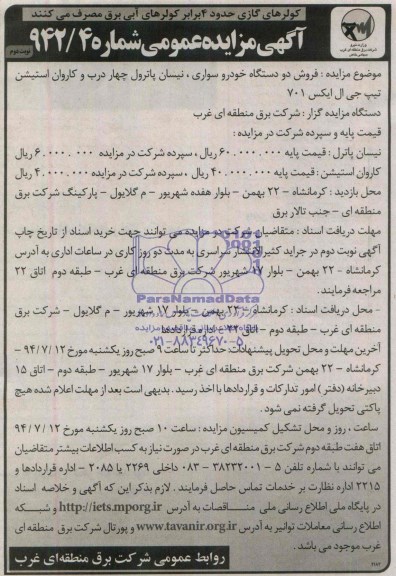 کولرهای گازی حدود ۴ برابر کولرهای آبی برق مصرف می کنند
آگهی مزایده عمومی شماره ۹۴۲/۴
نوبت دوم
موضوع مزایده : فروش دو دستگاه خودرو سواری ، نیسان پاترول چهار درب و کاروان استیشن
تیپ جی ال ایکس ۷۰۱
دستگاه مزایده گزار : شرکت برق منطقه ای غرب
قیمت پایه و سپرده شرکت در مزایده :
نیسان پاترل : قیمت پایه ۶۰.۰۰۰.۰۰۰ ریال ، سپرده شرکت در مزایده ۶.۰۰۰.۰۰۰ ریال
کاروان استیشن : قیمت پایه ۴۰.۰۰۰.۰۰۰ ریال ، سپرده شرکت در مزایده ۴.۰۰۰.۰۰۰ ریال
محل بازدید : کرمانشاه - ۲۲ بهمن - بلوار هفده شهریور - م گلایول - پارکینگ شرکت برق
منطقه ای - جنب تالار برق
مهلت دریافت اسناد : متقاضیان شرکت در مزایده می توانند جهت خرید اسناد از تاریخ چاپ
آگهی نوبت دوم در جراید کثیرالانتشار سراسری به مدت دو روز کاری در ساعات اداری به آدرس
کرمانشاه - ۲۲ بهمن - بلوار ۱۷ شهریور شرکت برق منطقه ای غرب - طبقه دوم اتاق ۲۲
مراجعه فرمایند.
- محل دریافت اسناد : کرمانشاه - ۲۲ بهمن - بلوار ۱۷ شهریور - م گلایول - شرکت برق
منطقه ای غرب - طبقه دوم - اتاق ۲۲ - اداره قراردادها
ParsNamadData
۰۲۱-۸۸۳۴۹۶۷۰-۵
آخرین مهلت و محل تحویل پیشنهادات: حداکثر تا ساعت ۹ صبح روز یکشنبه مورخ ۹۴/۷/۱۲ -
کرمانشاه - ۲۲ بهمن شرکت برق منطقه ای غرب - بلوار ۱۷ شهریور - طبقه دوم - اتاق ۱۵
دبیرخانه (دفتر) امور تدارکات و قراردادها با اخذ رسید . بدیهی است بعد از مهلت اعلام شده هیچ
پاکتی تحویل گرفته نمی شود.
ساعت ، روز و محل تشکیل کمیسیون مزایده : ساعت ۱۰ صبح روز یکشنبه مورخ ۹۴/۷/۱۲
اتاق هفت طبقه دوم شرکت برق منطقه ای غرب در صورت نیاز به کسب اطلاعات بیشتر متقاضیان
می توانند با شماره تلفن ۵ - ۳۸۲۳۲۰۰۱ - ۰۸۳ داخلی ۲۲۶۹ یا ۲۰۸۵ - اداره قراردادها و
۲۲۱۵ اداره نظارت بر خدمات تماس حاصل فرمایند . لازم بذکر این که آگهی و خلاصه اسناد
در پایگاه ملی اطلاع رسانی ملی مناقصات به آدرس http://iets.mporg.ir و شبکه
اطلاع رسانی معاملات توانیر به آدرس www.tavanir.org.ir و پورتال شرکت برق منطقه ای
غرب موجود می باشد .
روابط عمومی شرکت برق منطقه‌ای غرب